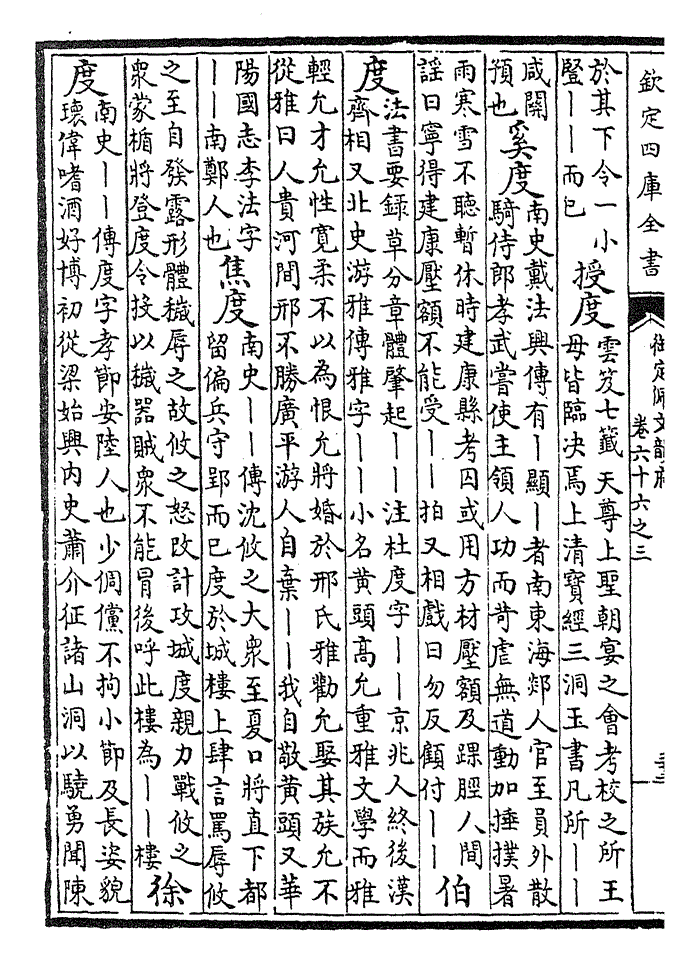 欽定四庫全書
御定佩文韻府
卷六十六之三
於其下令一小
豎丨丨而已
授度
雲笈七籤天尊上聖朝宴之會考校之所王
母皆臨決焉上清寶經三洞玉書凡所丨丨
咸關
預也
奚度
南史戴法興傳有丨顯丨者南東海郯人官至員外散
騎侍郎孝武嘗使主領人功而苛虐無道動加捶撲暑
雨寒雪不聽暫休時建康縣考囚或用方材壓額及踝脛人間
謡曰寧得建康壓額不能受丨丨拍又相戲曰勿反顧付丨丨
伯
度
法書要錄草分章體肇起丨丨注杜度字丨丨京兆人終後漢
齊相又北史游雅傳雅字丨丨小名黄頭高允重雅文學而雅
輕允才允性寛柔不以為恨允將婚於邢氏雅勸允娶其族允不
從雅曰人貴河間邢不勝廣平游人自棄丨丨我自敬黄頭又華
陽國志李法字
丨丨南鄭人也
焦度
南史丨丨傳沈攸之大衆至夏口將直下都
留偏兵守郢而已度於城樓上肆言罵辱攸
之至自發露形體穢辱之故攸之怒改計攻城度親力戰攸之
衆蒙楯將登度令投以穢器賊衆不能冒後呼此樓為丨丨樓
徐
度
南史丨丨傳度字孝節安陸人也少倜儻不拘小節及長姿貌
瓌偉嗜酒好博初從梁始興内史蕭介征諸山洞以驍勇聞陳